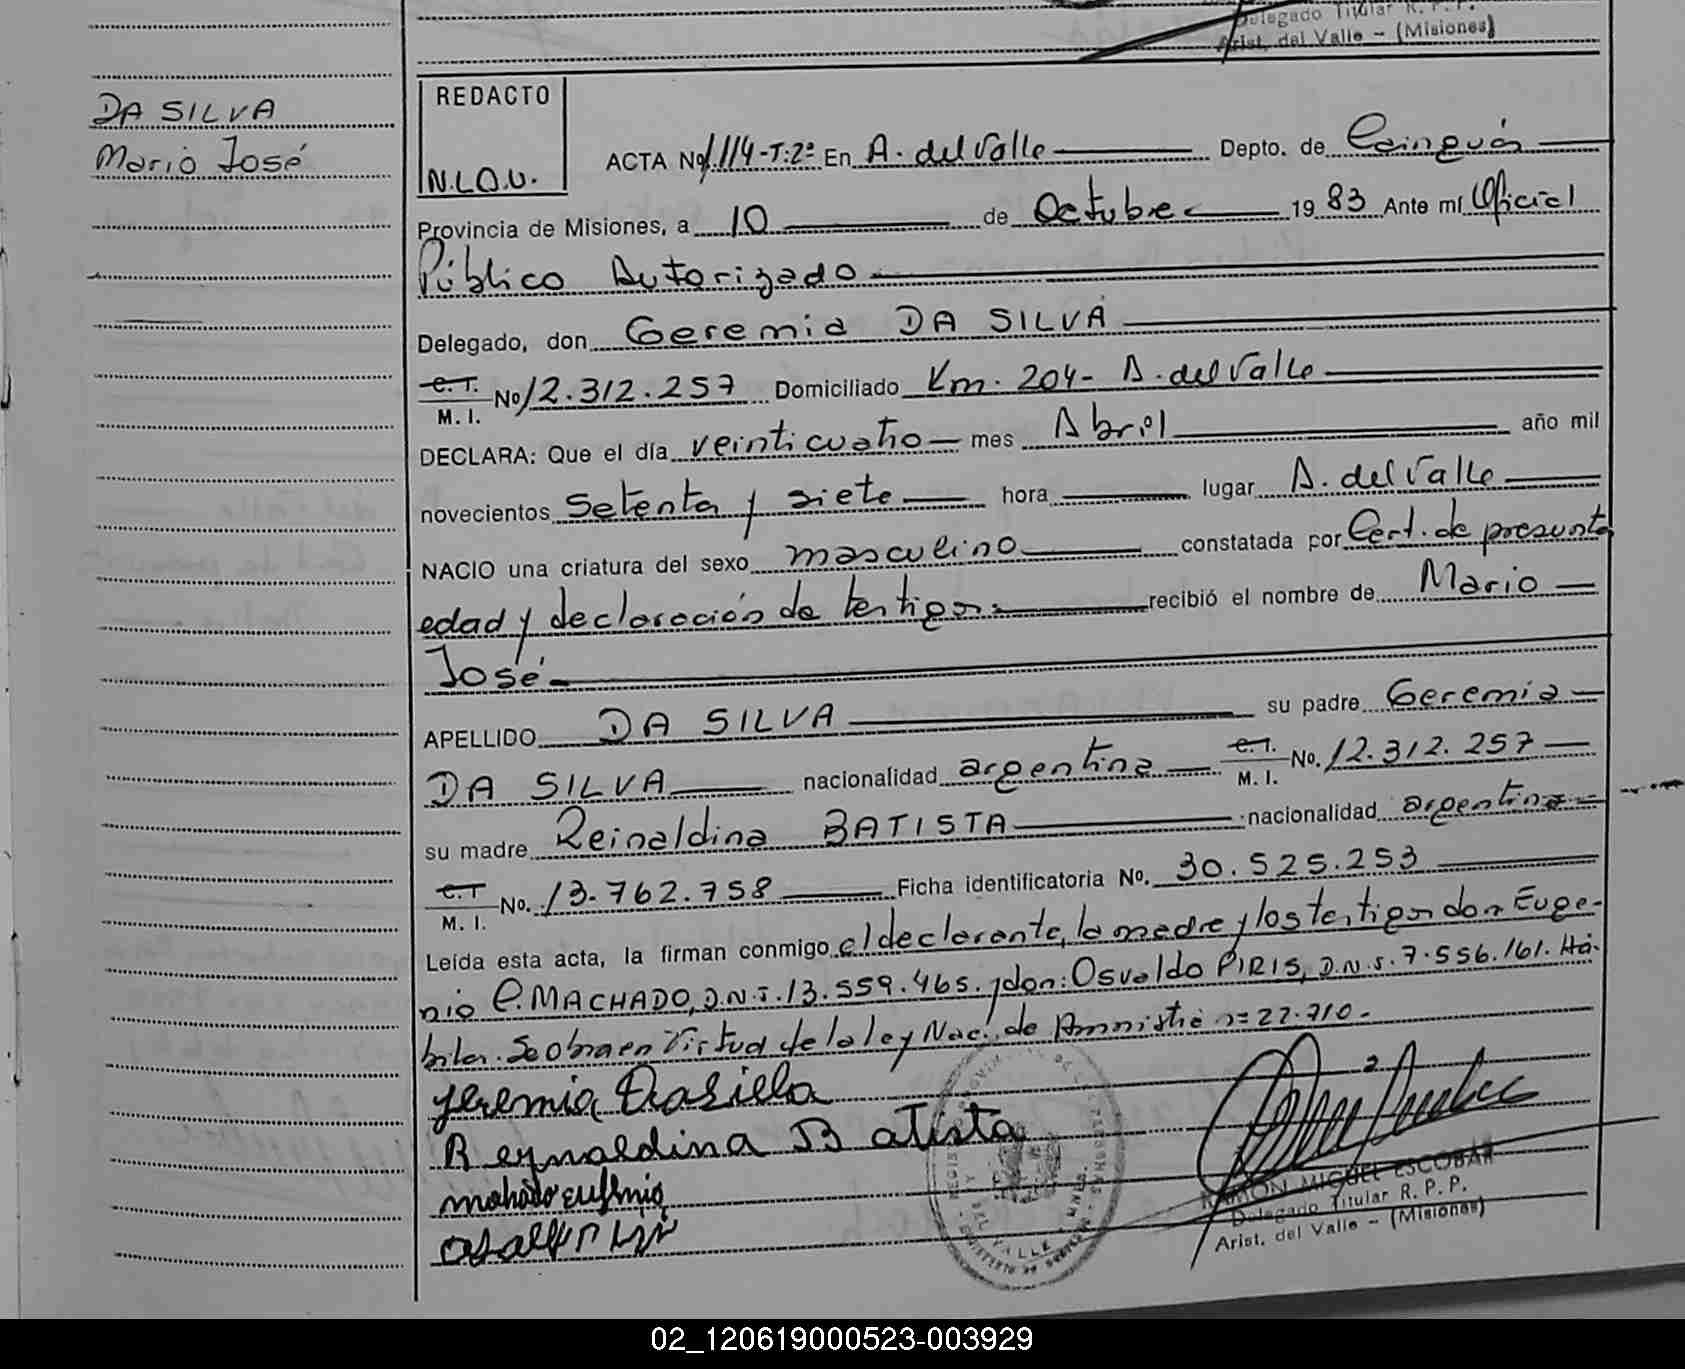 Delegado Titular R. P. P.
Arist. del Valle - (Misiones)
DA SILVA
Mario José
REDACTO
N.L.O.U.
ACTA Nº 1.114-T:2º En A. del Valle Depto. de Cainguás
Provincia de Misiones, a 10 de Octubre 1983 Ante mí Oficial
Público Autorizado
Delegado, don Geremia DA SILVA
C.I. M. I. Nº 12.312.257 Domiciliado Km. 204- A. del Valle
DECLARA: Que el día veinticuatro mes Abril año mil
novecientos setenta y siete hora lugar A. del Valle
NACIO una criatura del sexo masculino constatada por Cert. de presunta
edad y declaración de testigos recibió el nombre de Mario
José
APELLIDO DA SILVA su padre Geremia
DA SILVA nacionalidad argentina C.I. M. I. No. 12.312.257
su madre Reinaldina BATISTA nacionalidad argentina
C.I M. I. No. 13.762.758 Ficha identificatoria No. 30.525.253
Leída esta acta, la firman conmigo el declarante, la madre y los testigos don Euge-
nio C. MACHADO, D.N.I. 13.559.465. y don: Osvaldo PIRIS, D.N.I. 7.556.161. Há-
biles. Se obra en Virtud de la ley Nac. de Amnistía nº 22.710.
Jeremia Dasilva
Reynaldina Batista
RAMON MIGUEL ESCOBAR
Delegado Titular R. P. P.
Arist. del Valle - (Misiones)
02_120619000523-003929